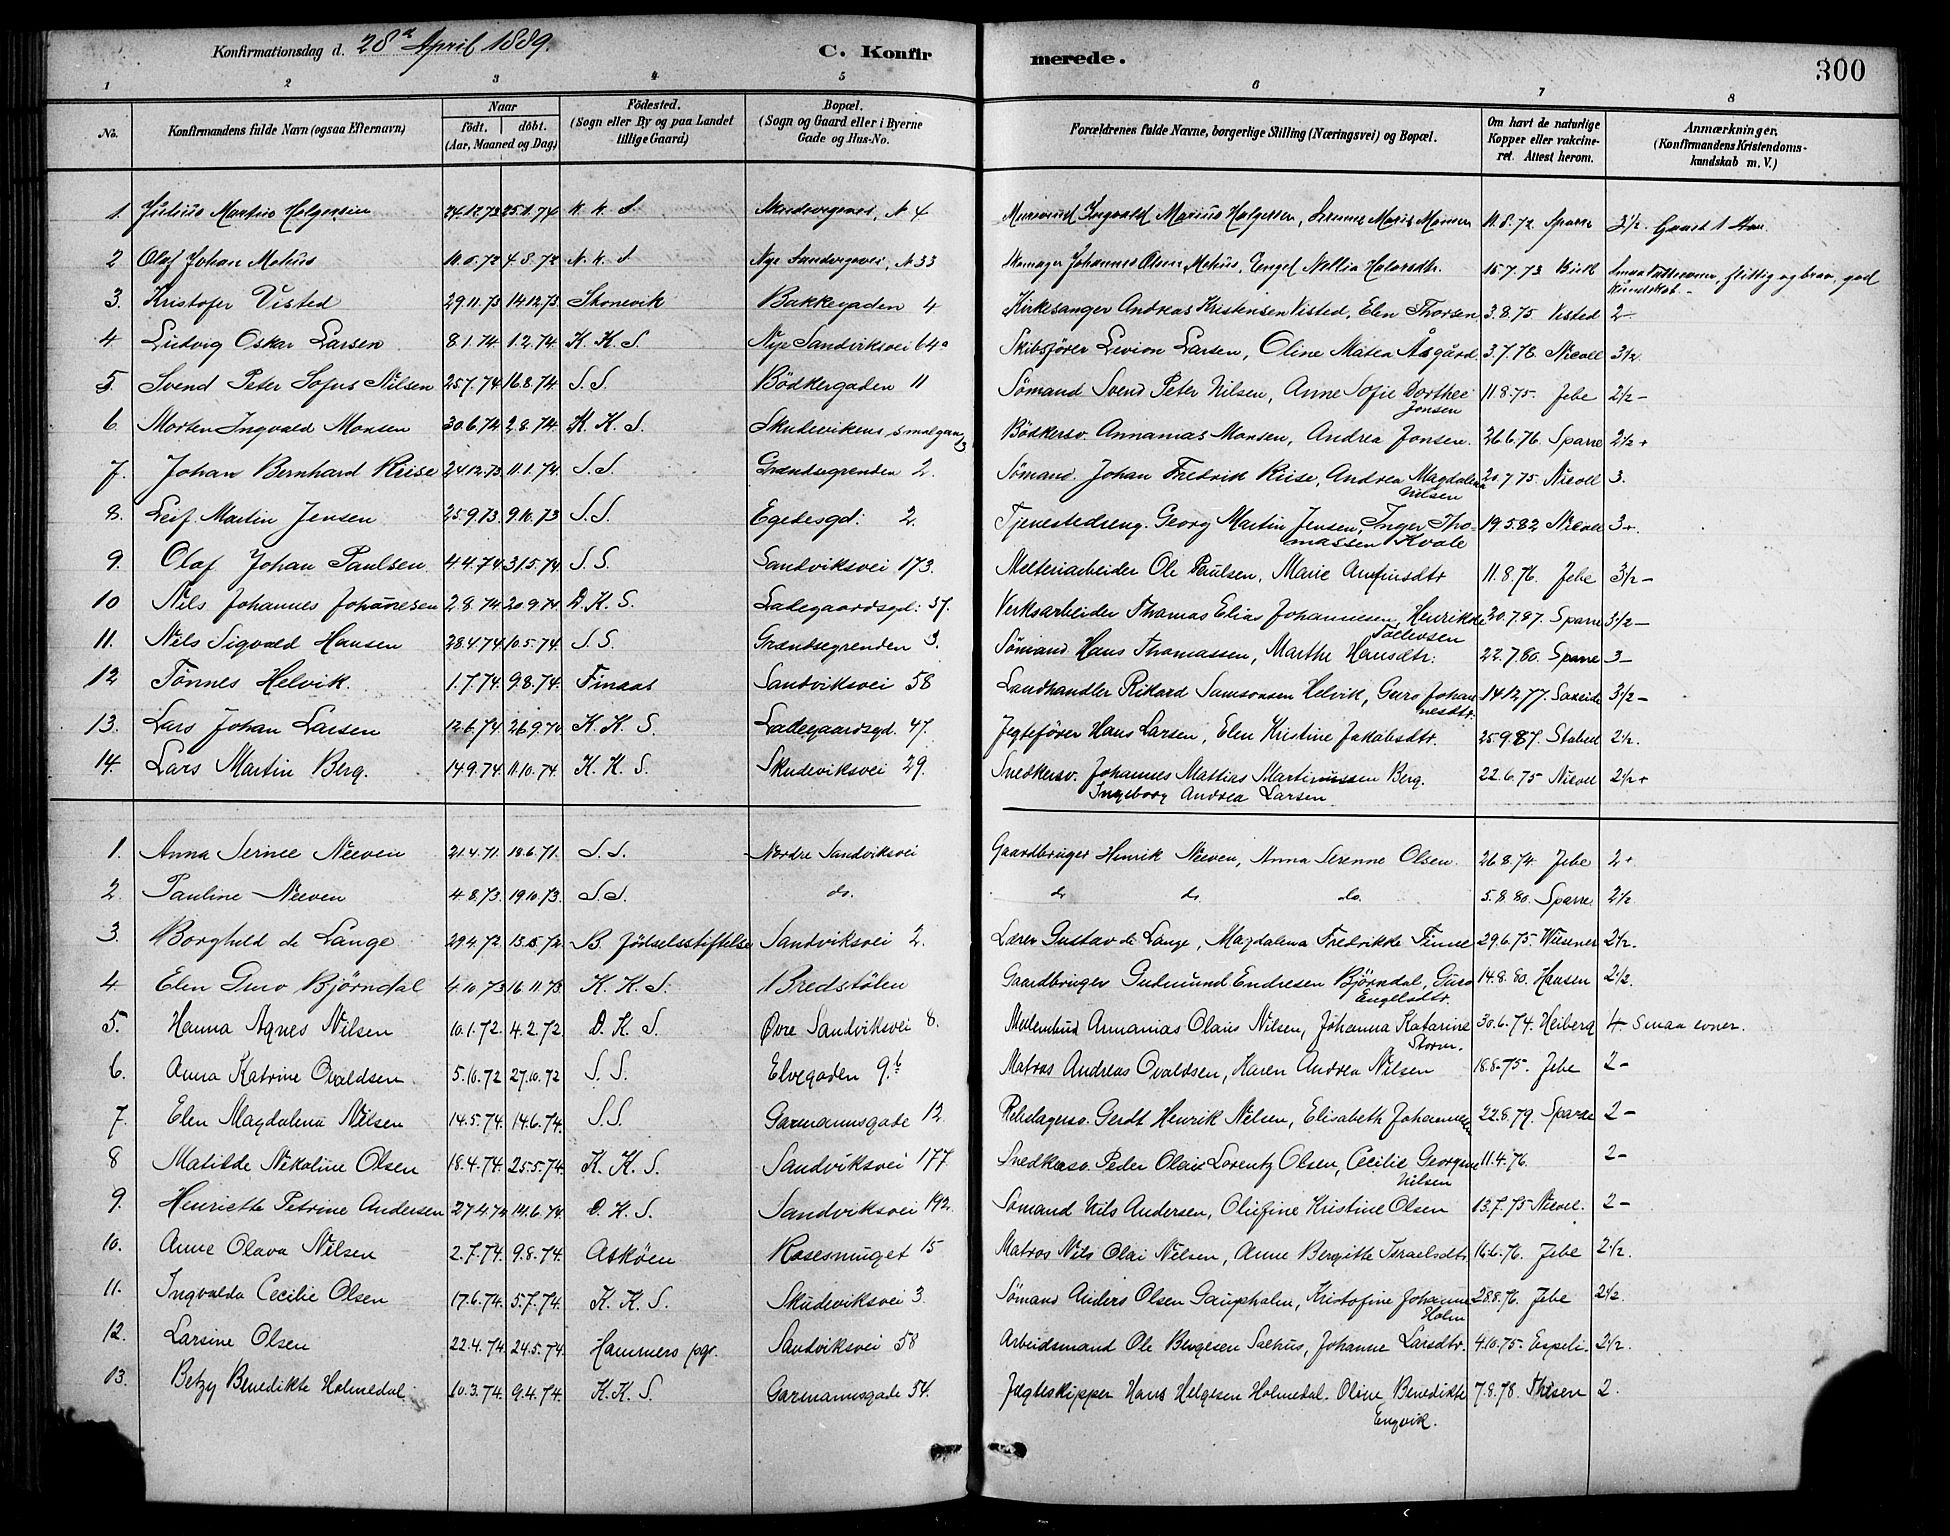 Konfirmationsdag d. 28d April 1889.
C. Konfirmerede.
300
1 2 3 4 5 6 7 8
No.
Konfirmandens fulde Navn (ogsaa Efternavn)
Naar
født. døbt.
(Aar, Maaned og Dag)
Fødested.
(Sogn eller By og paa Landet
tillige Gaard)
Bopæl.
(Sogn og Gaard eller i Byerne
Gade og Hus-No.
Forældrenes fulde Navne, borgerlige Stilling (Næringsvei) og Bopæl.
Om havt de naturlige
Kopper eller vakcine-
ret. Attest herom.
Anmærkninger,
(Konfirmandens Kristendoms-
kundskab m. V.)
1. Julius Martin Holgersen K. K. S Skudevigsvei, N. 4 Ingvald Marius Holgersen, 11.8.72 Sparre 3½.
2 Olaf Johan Mohus N. K. S Nye Sandvigsvei, N 33 Skomager Johannes Olsen Mohus, Engel 15.7.73 flittig og brav, god
Kundskab
3. Kristofer Visted 29.11.73 14.12.73 Skonevik Bakkegaden 4 Kirkesanger Andreas Kristensen Visted, Elen Thorsen 3.8.75 Visted 2-
4. Ludvig Oskar Larsen 8.1.74 1.2.74 K. K. S Nye Sandviksvei 64a Skibsfører Levion Larsen, Oline Matea Åsgård 3.7.76 Nicoll 3½
5. Svend Peter Sofus Nilsen 25.7.74 16.8.74. S. S. Bødkergaden 11 Sømand Svend Peter Nilsen, Anne Sofie Dorthee 11.8.75. Jebe 2½-
Jonsen
6. Morten Ingvald Monsen 30.6.74 2.8.74. K. K. S. Skudevikens smalgang 3 Bødkersv. Annanias Monsen, Andrea Jonsen. 26.6.76. Sparre 2½+
7. Johan Bernhard Riise 24.12.73 11.1.74. S. S. Grændsegrenden 2. Sømand. Johan Fredrik Riise, Andrea Magdalena 20.7.75. Nicoll 3.
Nilsen
8. Leif Martin Jensen 25.9.73. 9.10.73 S. S. Egedesgd. 2. Tjenestedreng. Georg Martin Jensen, Inger Tho- 19.5.82 Nicoll 3+.
massen Kvale
9. Olaf Johan Paulsen 4.4.74 31.5.74 S. S. Sandviksvei 173. Ole Paulsen, Marie Amfinsdtr 11.8.76. Jebe 3½-
10 Nils Johannes Johannesen 2.8.74 20.9.74 D. K. S. Ladegaardsgd: 37. Verksarbeider Thomas Elias Johannesen, Henrikke 20.7.87. Sparre 3½-
Tollevsen
11. Nils Sigvald Hansen 28.4.74 10.5.74. S. S. Grændsegrenden 3. Sømand Hans Thomassen, Marthe Hansdtr. 22.7.80. Sparre 3-
12 Tønnes Helvik. 1.7.74. 9.8.74. Finaas Sandviksvei 58 Landhandler Rikard Samsonsen Helvik, Guro Johan 14.12.77. 3½-
nesdtr.
13. Lars Johan Larsen 12.6.74. 26.9.74 K. K. S. Ladegaardsgd. 47. Jegtefører Hans Larsen, Elen Kristine Jakobsdtr. 25.9.87. Stabell 2½.
14. Lars Martin Berg. 14.9.74. 11.10.74. K. K. S. Skudeviksvei 29. Snedkersv. Johannes Mattias Martinussen Berg. 22.6.75 Nicoll 2½+
Ingeborg Andrea Larsen
1. Anna Serine Neeven 21.4.71 18.6.71. S. S. Nordre Sandviksvei Gaardbruger Henrik Neeven, Anna Serenne Olsen. 26.8.74. Jebe 2+
2. Pauline Neeven 4.8.73. 19.10.73. S. S. do. do do do. 5.8.80. Sparre 2½
3. Borghild de Lange 29.4.72 B. Fødselsstiftelse Sandviksvei 2. Lærer Gustav de Lange, Magdalena Fredrikke Finne 29.6.75. Wiesener 2½.
4. Elen Guro Bjørndal 4.10.73 16.11.73 K. K. S. Bredstølen Gaardbruger Gudmund Endresen Bjørndal, Guro 14.8.80. Hansen 2½.
Engelsdtr.
5. Hanna Agnes Nilsen 10.1.72. 4.2.72 D. K. S. Øvre Sandviksvei 8. Annanias Olaus Nilsen, Johanna Katarine 30.6.74. Heiberg 4- Smaa evner.
Storm.
6. Anna Katrine Ovaldsen 5.10.72 27.10.72 S. S. Elvegaden 9b Matros Andreas Ovaldsen, Karen Andrea Nilsen 18.8.75. Jebe 2-
7. Elen Magdalena Nilsen 14.5.74. 14.6.74. S. S. Garmannsgade 12. Rebslagersv. Gerdt Henrik Nilsen, Elisabeth Johannesen 22.8.79. Sparre 2-
8 Matilde Nikoline Olsen 18.4.74. 25.5.74. K. K. S. Sandviksvei 177 Snedkersv. Peder Olais Lorentz Olsen, Cecilie Georgine 11.4.76. 2-
Nilsen
9. Henriette Petrine Andersen 27.4.74 14.6.74. D. K. S. Sandviksvei 192. Sømand Nils Andersen, Oliefine Kristine Olsen 13.7.75 Nicoll. 2-
10. Anne Olava Nilsen 2.7.74. 9.8.74. Askøen Rosesmuget 15 Matros Nils Olai Nilsen, Anne Bergitte Israelsdtr. 16.6.76. Jebe 2½.
11. Ingvalda Cecilie Olsen 17.6.74. 5.7.74. K. K. S. Skudeviksvei 3. Sømand Anders Olsen Gauphalm, Kristofine Johanne 28.8.76. Jebe 2½.
Holm
12. Larsine Olsen 22.4.74. 24.5.74. Hammers pgr. Sandviksvei 58 Arbeidsmand Ole Børgesen Salhus, Johanne Larsdtr. 4.10.75. Espeli. 2½.
13. Betzy Benedikte Holmedal 10.3.74. 9.4.74. K. K. S. Garmannsgade 54. Jægteskipper Hans Helgesen Holmedal. Oline Benedikte 7.8.78. 2.
Engvik.